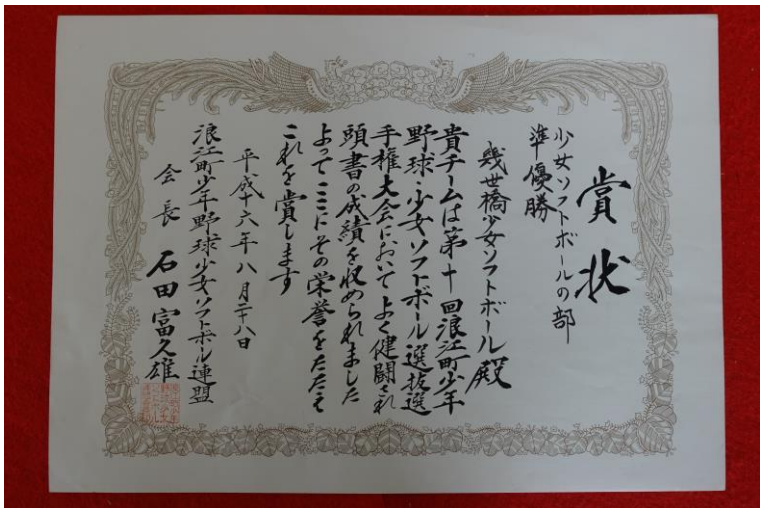 賞状
少女ソフトボールの部
準優勝
幾世橋少女ソフトボール殿
貴チームは第十回浪江町少年
野球・少女ソフトボール選抜選
手権大会においてよく健闘され
頭書の成績を収められました
よってここにその栄誉をたたえ
これを賞します
平成十六年八月二十八日
浪江町少年野球少女ソフトボール連盟
会長 石田富久雄